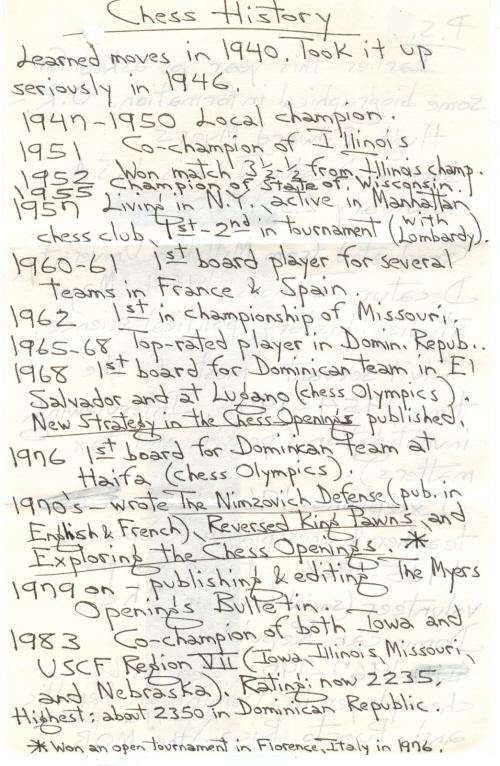 Chess History
Learned moves in 1940. Took it up
seriously in 1946.
1947-1950 Local champion.
1951 Co-champion of Illinois
1952 Won match 3½-½ from Illinois champ.
1955 Champion of State of Wisconsin.
1957 Living in N.Y., active in Manhattan
chess club, 1st-2nd in tournament (with Lombardy).
1960-61 1st board player for several
teams in France & Spain.
1962 1st in championship of Missouri.
1965-68 Top-rated player in Domin. Repub..
1968 1st board for Dominican team in El
Salvador and at Lugano (chess Olympics).
New Strategy in the Chess Openings published.
1976 1st board for Dominican team at
Haifa (chess Olympics).
1970's - wrote The Nimzovich Defense (pub. in
English & French), Reversed King Pawns, and
Exploring the Chess Openings. *
1979 on - publishing & editing The Myers
Openings Bulletin.
1983 Co-champion of both Iowa and
USCF Region VII (Iowa, Illinois, Missouri,
and Nebraska). Rating: now 2235.
Highest: about 2350 in Dominican Republic.
* Won an open tournament in Florence, Italy in 1976.